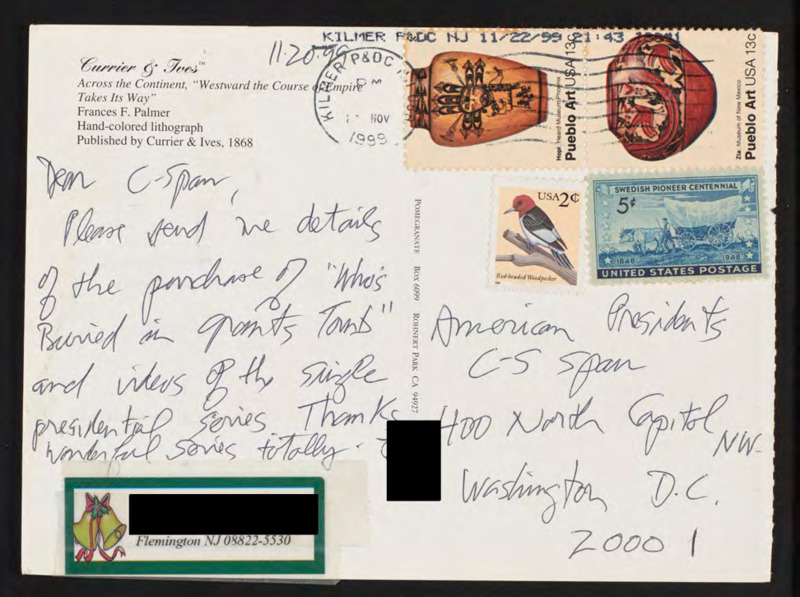 KILMER P&DC NJ 11/22/99 21:43
11-20-99
Currier & Ives™
Across the Continent, "Westward the Course of Empire
Takes Its Way"
Frances F. Palmer
Hand-colored lithograph
Published by Currier & Ives, 1868
KILMER P&DC
PM
NOV
1999
Hopi: Heard Museum Phoenix
Pueblo Art USA 13c
Zia: Museum of New Mexico
Pueblo Art USA 13c
USA 2¢
Red-headed Woodpecker
SWEDISH PIONEER CENTENNIAL
5¢
1848 1948
UNITED STATES POSTAGE
Dear C-Span,
Please send me details
of the purchase of "Who's
Buried in grants Tomb"
and videos of the single
presidential series Thanks
wonderful series totally.
POMEGRANATE BOX 6099 ROHNERT PARK CA 94927
American Presidents
C-S Span
400 North Capitol NW.
Washington D.C.
20001
Flemington NJ 08822-5530